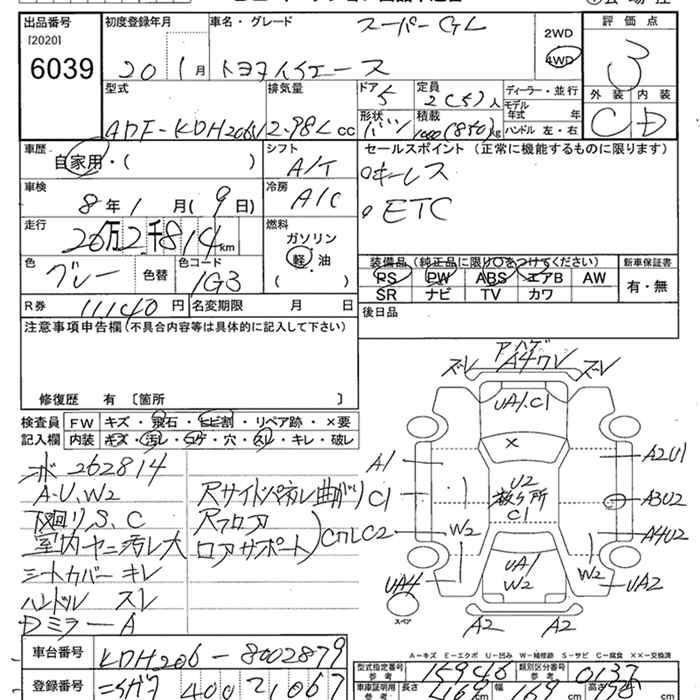 出品番号 初度登録年月 車名・グレード 評価点
[2020] スーパーGL 2WD
6039 20年 1月 トヨタハイエース 4WD 3
外装 内装
C D
型式 排気量 ドア 定員 ディーラー・並行
ADF-KDH206V 2.98L cc 5 2(5)人 モデル年式 年
形状 積載 ハンドル 左・右
バン 1000(850)kg
車歴 シフト セールスポイント (正常に機能するものに限ります)
自家用・( ) A/T キーレス
車検 冷房
8年 1月(9日) A/C ETC
走行 燃料
20万2千814km ガソリン
色 色替 色コード 軽・油
グレー 1G3 ( )
装備品 (純正品に限り○をつけてください) 新車保証書
PS PW ABS エアB AW 有・無
SR ナビ TV カワ
R券 11140円 名変期限 月 日 後日品
注意事項申告欄 (不具合内容等は具体的に記入して下さい)
修復歴 有 〔箇所 〕
検査員 FW キズ・飛石・ヒビ割・リペア跡・×要
記入欄 内装 キズ・汚レ・コゲ・穴・スレ・キレ・破レ
メーター 262814
A・U、W2 Rサイドパネル曲がり C1
下廻りS、C Rフロア
室内ヤニ汚レ大 ロアサポート
シートカバーキレ
ハンドル スレ
DミラーA
ズレ アハゲ A4ワレ ズレ
UA1.C1
×
A1 A2U1
C1 U2 A3U2
C1
C2 W2 A4U2
UA1 W2
UA4 W2 UA2
スペア A2 A2
A-キズ E-エクボ U-凹み W-補修跡 S-サビ C-腐食 XX-交換済
車台番号 KDH206-8002879
型式指定番号 参考 15946 類別区分番号 参考 0137
登録番号 400 21067
車庫証明用 参考 長さ 469 幅 169 高さ